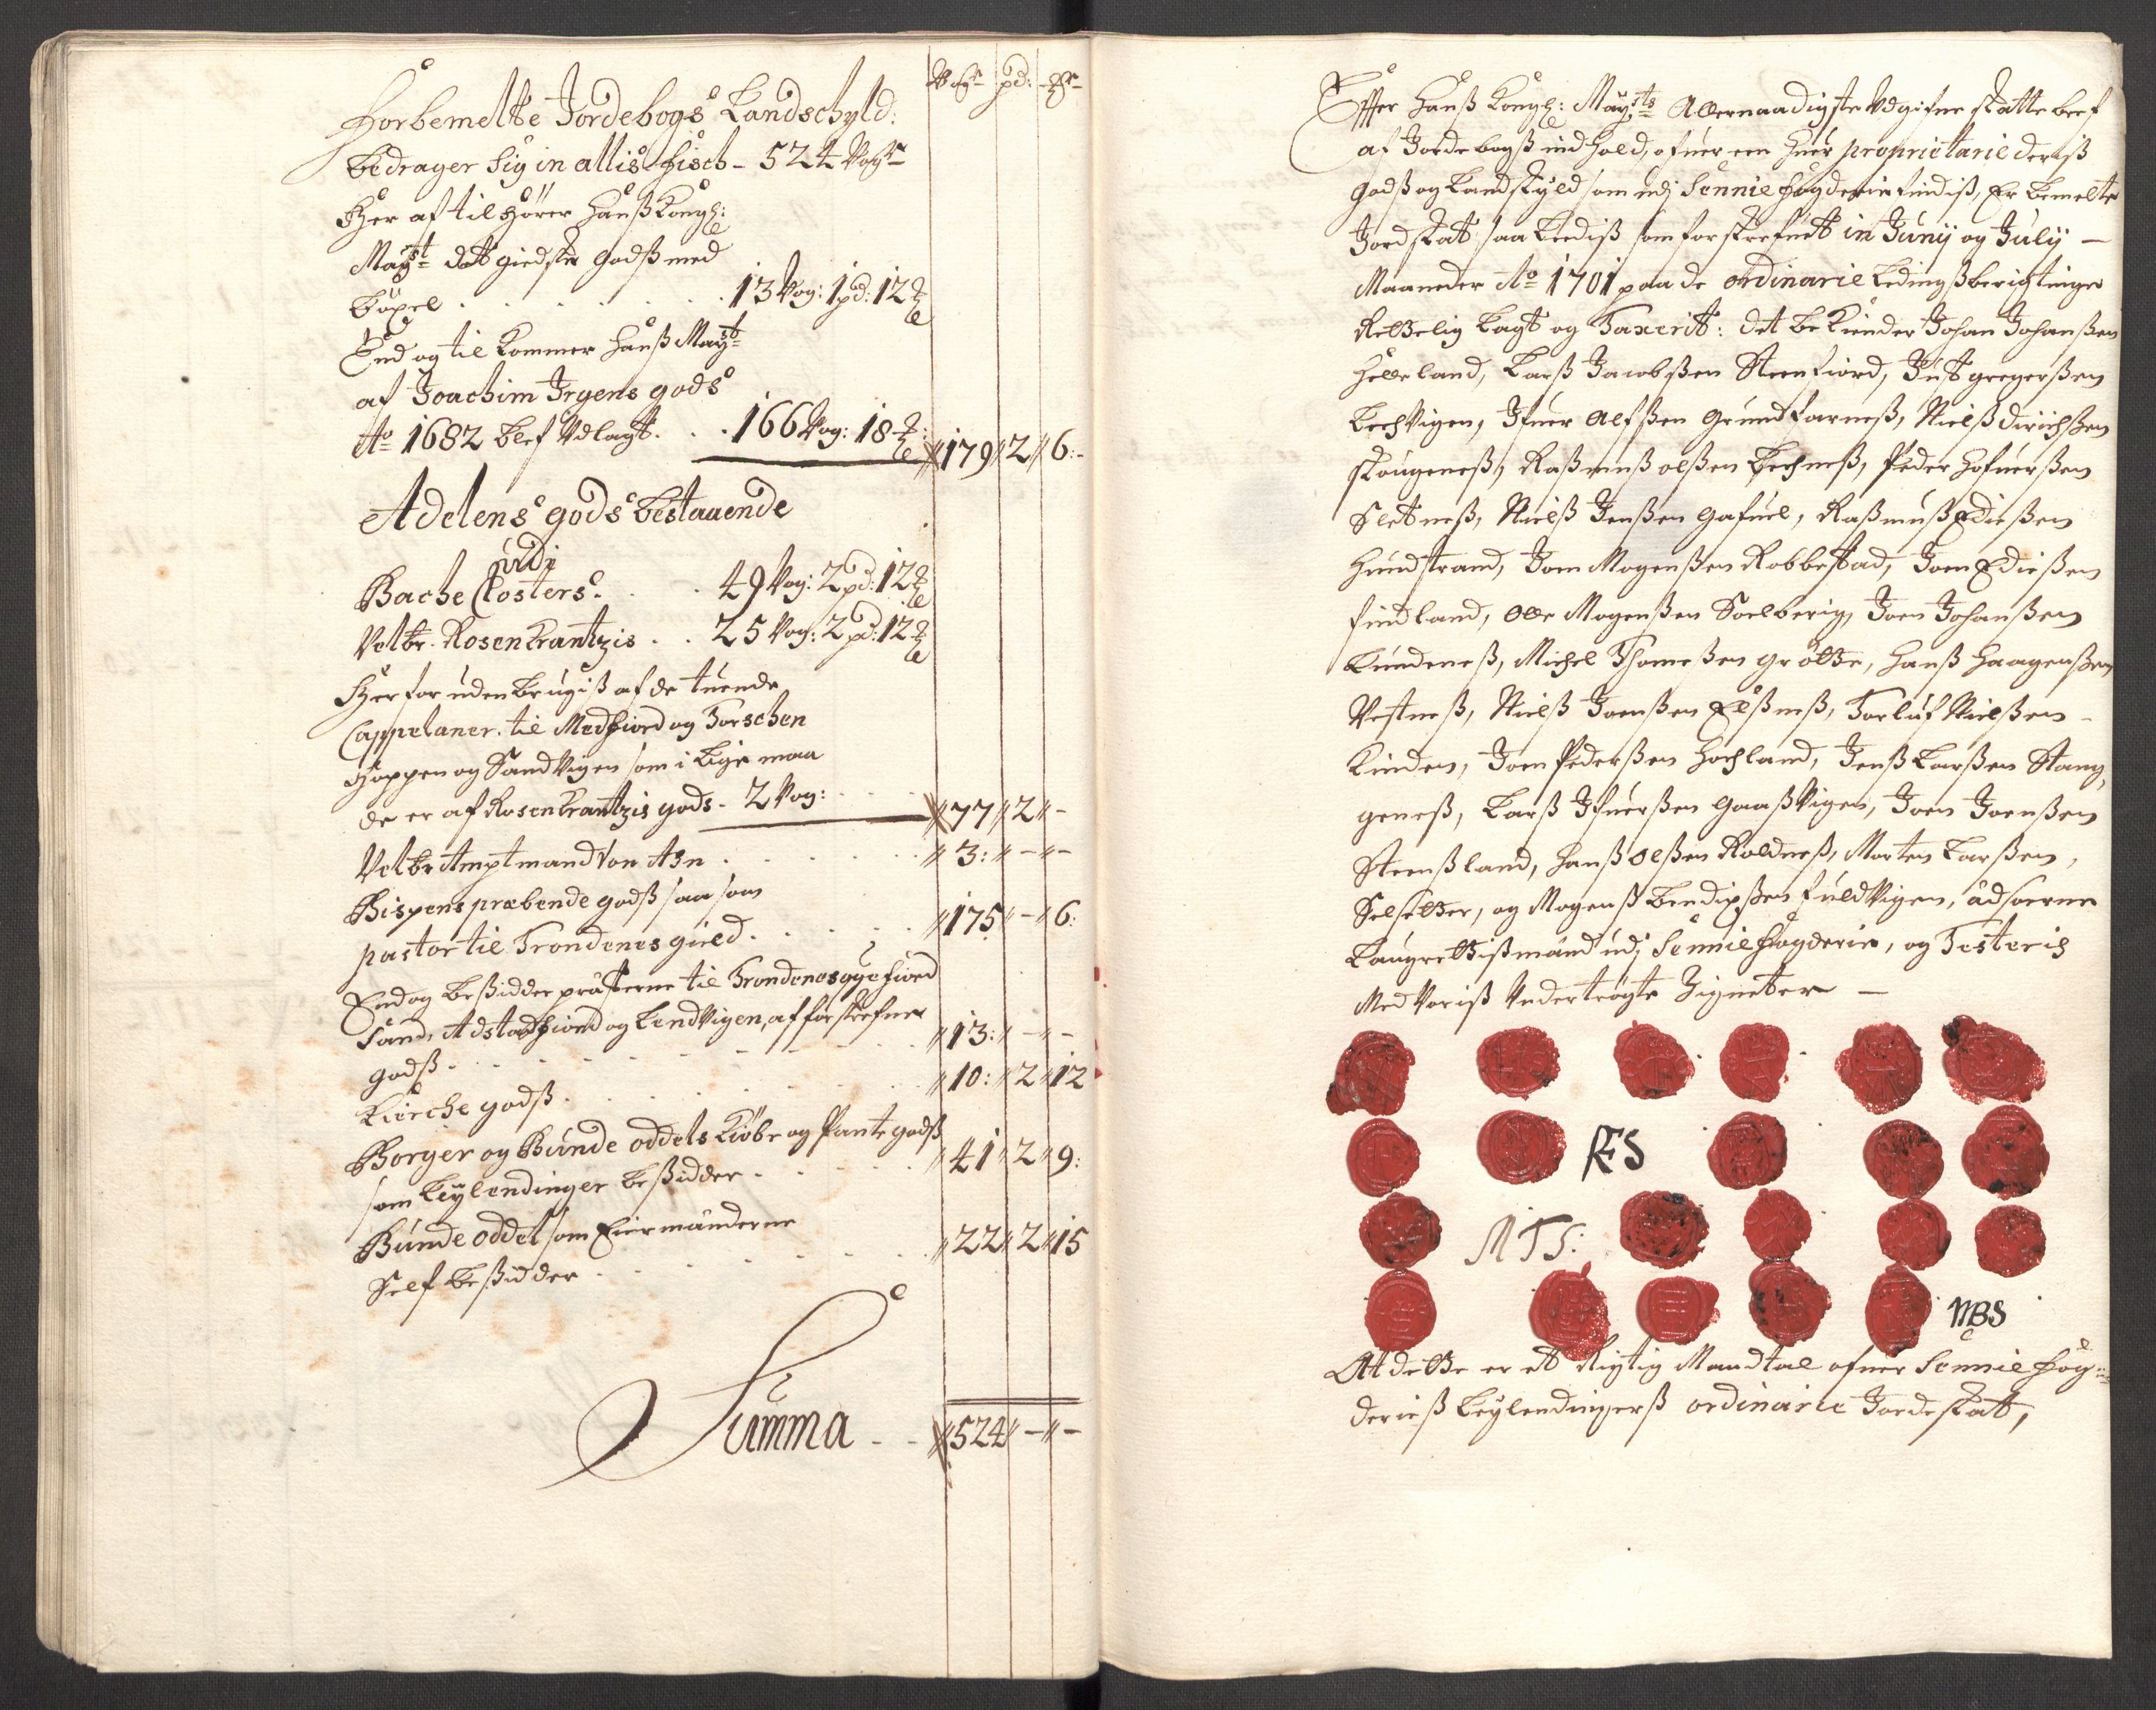 Vogr pd: ℔r
Forbemelte Jordebogs Landschyld:
bedrager sig in allis fisch - 524 Vogr
Her af tilhører Hanß Kongl:
Mayst: dett giedste godß med
bøxel . . . . . . 13 Vog: 1 pd: 12 ℔
End og til kommer Hanß Mayst:
af Joachim Irgens gods
Ao 1682 blef Udlagt . . 166 Vog: 18 ℔: 179 2 6:-
Adelens gods bestaaende
udj
Bache Closters . . 49 Vog: 2 pd: 12 ℔
Velbr. Rosenkrantzis . . 25 Vog: 2 pd: 12 ℔
Her foruden brugiß af de tuende
Cappelaner til Medfiord og Torschen
Hoppen og Sandvigen som i lige maa
de er af Rosenkrantzis gods - 2 Vog: 77 2 -
Velbr Amptmand Von Asn . . . 3: - -
Bispens præbende godß saa som
pastor til Trondenes gield . . . 175 - 6:
End og beßidder præsterne til Trondenes gye fiord
Sand, Astafiord og Lendvigen, af forskrefne
godß . . . 13: - -
Kierche godß . . . 10: 2 12
Borger og Bunde oddels Kiøbe og Pante godß
som Leylendinger beßidder . . . 41 2 9:
Bunde oddel som Eiermænderne
Self beßidder . . . 22 2 15
Summa . . 524 - -
Effter Hanß Kongl: Maysts Allernaadigste Udgifne skatte bref
af Jordebogß indhold, ofuer een huer proprietarie deriß
godß og Landskyld som udj Sennie fogderie findiß, Er bemelte
Jordskat saa leediß som forskrefuet in Junij og Julij —
Maaneder Ao 1701 paa de ordinarie Ledingßberigtinger
Rettelig lagt og Taxerit: det bekiender Johan Johanßen
Helleland, Larß Jacobßen Steenfiord, Just gregerßen
Lechvigen, Ifuer Alfßen Grundfarneß, Nielß Dirichßen
skougeneß, Raßmuß olßen Lechneß, Peder Hofuerßen
Sletneß, Nielß Jenßen Gafuel, Raßmuß Edießen
Hundstrand, Joen Mogenßen Robbestad, Joen Edießen
findland, Olle Mogenßen Soelberig, Joen Johanßen
Kundneß, Michel Thomeßen grøtte, Hanß Haagenßen
Vestneß, Nielß Joenßen Elßneß, Torluf Nielßen -
Kinden, Joen Pederßen Hochland, Jenß Larßen Stang,
geneß, Larß Ifuerßen Gaaßvigen, Joen Joenßen
Steenßland, Hanß olßen Roldneß, Morten Larßen,
Selsetter, og Mogenß Bendixßen fuldvigen, Edsoerne
Laugrettißmænd udj Sennie fogderie, og Testeris
Med voriß undertrøgte Zigneter —
RES
MTS:
MBS
At dette er et Rigtig Mandtal ofuer Sennie fog-
derieß Leylendingerß ordinarie Jordeskat,